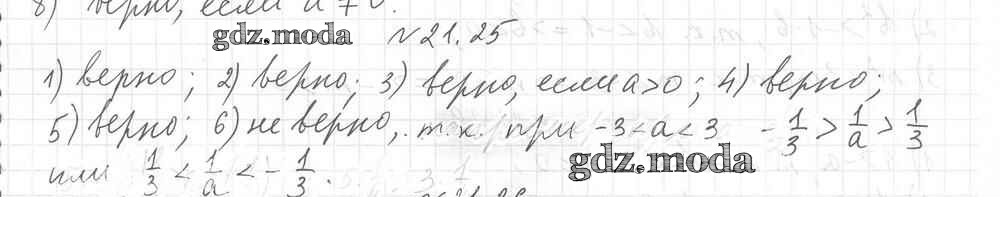 8) верно, если a ≠ 0.
gdz.moda
№ 21.25
1) верно; 2) верно; 3) верно, если a>0; 4) верно;
5) верно; 6) не верно, т.к. при -3<a<3 -1/3 > 1/a > 1/3
gdz.moda
или 1/3 < 1/a < -1/3.